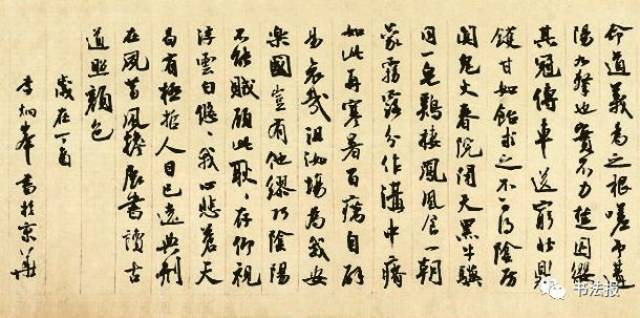 命道義為之根嗟予遘
陽九隸也實不力楚囚纓
其冠傳車送窮北鼎
鑊甘如飴求之不可得陰房
闃鬼火春院閟天黑牛驥
同一皂鷄棲鳳凰食一朝
蒙霧露分作溝中瘠
如此再寒暑百癘自辟
易哀哉沮洳場為我安
樂國豈有他繆巧陰陽
不能賊顧此耿、存仰視
浮雲白悠、我心悲蒼天
曷有極哲人日已遠典刑
在夙昔風檐展書讀古
道照顏色
歲在丁酉
李炯峰書於京華
书法报